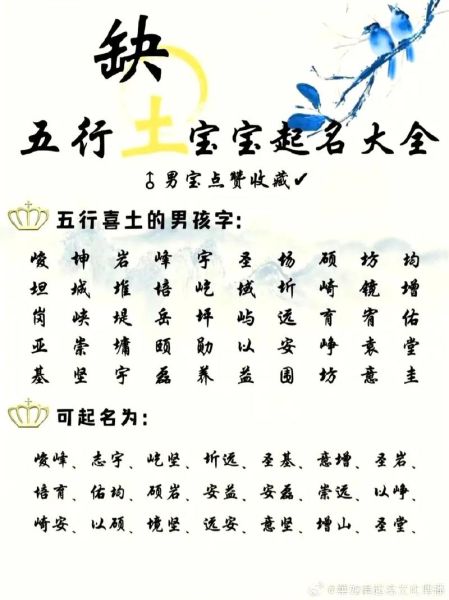 缺
五行土宝宝起名大全
♂男宝点赞收藏✔
五行喜土的男孩字:
峻 坤 岩 峰 宇 圣 场 硕 坊 均
坦 城 堆 培 屹 域 圻 崎 镜 增
岗 峡 堤 岳 坪 屿 远 育 宥 佑
亚 崇 墉 颐 勋 以 安 峥 袁 堂
基 坚 宇 磊 养 益 围 坊 意 圭
可起名为:
峻峰、志宇、屹坚、圻远、圣基、意增、圣岩、
培育、佑均、硕岩、安益、安磊、崇远、以峥、
崎安、以硕、境坚、远安、意坚、增山、圣堂、